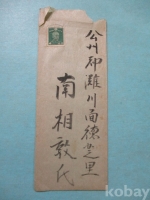 公州郡灘川面德芝里
南相敦氏
kobay